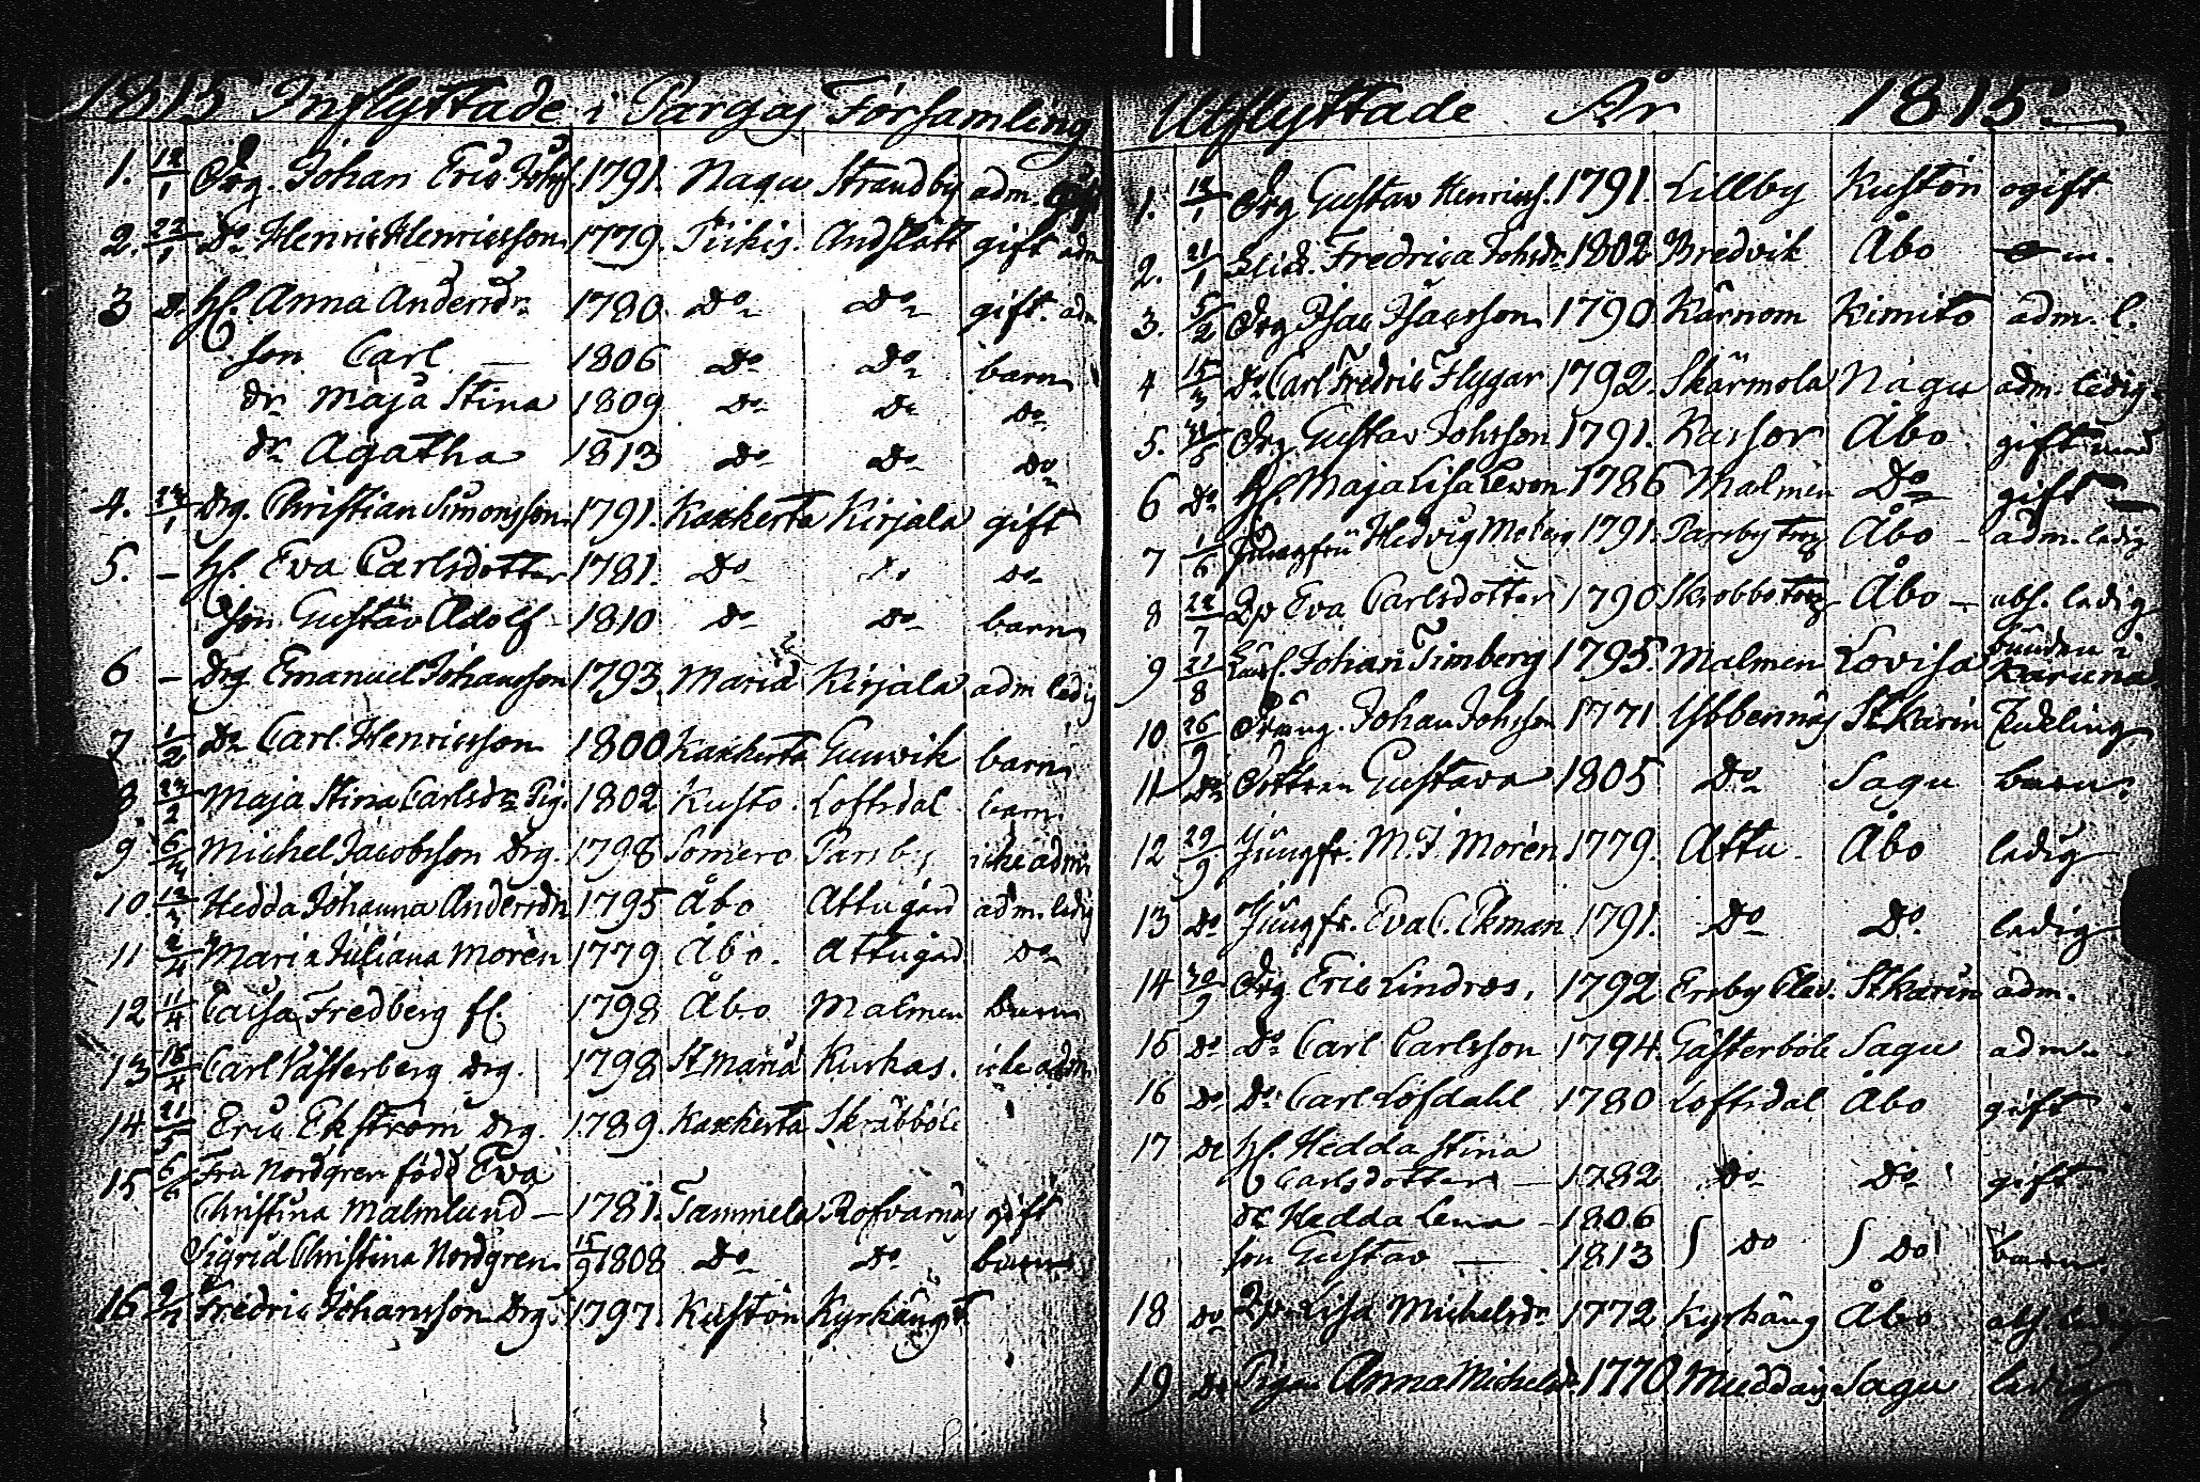 1815 Inflyttade i Pargas Församling
1. 12/1 Drg. Johan Eric Johs 1791. Nagu Strandby adm.
2. 22/1 Do Henric Henricsson 1779. Piikis. Andslätt gift adm
3 Do H. Anna Andersdr 1780 Do Do gift. adm
son Carl — 1806 Do Do barn
dr Maja Stina 1809 Do Do Do
dr Agatha 1813 Do Do Do
4. 24/1 Drg. Christian Simonsson 1791. Kaxkerta Kirjala gift
5. — H. Eva Carlsdotter 1781. Do Do Do
Son Gustav Adolf 1810 Do Do barn
6 — Drg Emanuel Johansson 1793. Maria Kirjala adm ledig
7 1/2 Do Carl Henricsson 1800 Kaxkerta Gunvik barn
8 24/2 Maja Stina Carlsdr Pig. 1802 Kusto. Loftsdal barn
9 6/4 Michel Jacobsson Drg. 1798 Somero Parsby icke adm
10. Hedda Johanna Andersdr 1795 Åbo Attugård adm. ledig
11 2/4 Maria Juliana Morén 1779 Åbo. Attugård Do
12 11/4 Caisa Fredberg fl. 1798 Åbo Malmen Barn
13 16/4 Carl Västerberg Drg. 1798 St Maria Kurkas. icke adm
14 21/5 Eric Ekström Drg. 1789. Kaxkerta Skräbböle
15 6/6 Fru Nordgren född Eva
Christina Malmlund — 1781. Tammela Rofvarnäs gift
Sigrid Christina Nordgren 15/9 1808 Do Do barn
16 9/7 Fredric Johansson Drg. 1797 Kustön Kyrkängst
Utflyttade År 1815.
1. 12/1 Drg Gustav Henrics. 1791. Lillby Kustön ogift
2. 21/1 Fredrica Johsdr 1802 Bredvik Åbo
3. 5/2 Drg Isac Isacsson 1790. Kärnom Kimito adm. l.
4 15/3 Do Carl Fredric Flygar 1792. Skärmola Nagu adm. ledig.
5. Drg. Gustav Johsson 1791. Kassor Åbo gift
6 Do H. Maja Lisa Lewon 1786 Malmen Do gift
7 1/6 Jungfru Hedvig Moberg 1791. Parsby torp Åbo — adm. ledig
8 22/7 Qp Eva Carlsdotter 1790 Skrobbo torp Åbo — abs. ledig
9 21/8 Johan Timberg 1795. Malmen Lovisa bunden i Karuna
10 26/9 Dräng. Johan Johsson 1771 Ybbernäs St Karin Enkling
11 Do Dottren Gustava 1805 Do Sagu barn.
12 29/9 Jungfr. M. J. Morén 1779. Attu. Åbo ledig
13 Do Jungfr. Eva C. Ekman 1791. Do Do. ledig
14 30/9 Drg Eric Lindros, 1792 Ersby Clev. St Karin adm.
15 Do Do Carl Carlsson 1794. Gästerböle Sagu adm.
16 Do Do Carl Löfdahl 1780 Loftsdal Åbo gift
17 Do H. Hedda Stina
Carlsdotter — 1782 Do Do gift
dr Hedda Lena — 1806
son Gustav — 1813 Do Do barn.
18 Do Qp Lisa Michelsdr 1772 Kyrkäng Åbo abs. ledig
19 Do Pigan Anna Michelsd. 1770 Muddais Sagu ledig